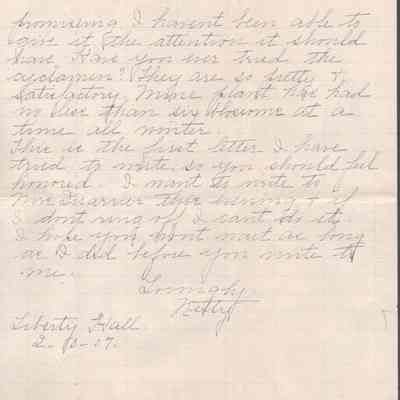 promising. I havent been able to
give it the attention it should
have. Have you ever tried the
cyclamen? They are so pretty &
satisfactory. Mine plant has had
no less than six blossoms at a
time all winter.
This is the first letter I have
tried to write, so you should feel
honored. I want to write to
Mrs. this evening & if
I dont ring off I cant do it.
I hope you wont wait as long
as I did before you write to
me.
Lovingly,
Liberty Hall
2- -07.